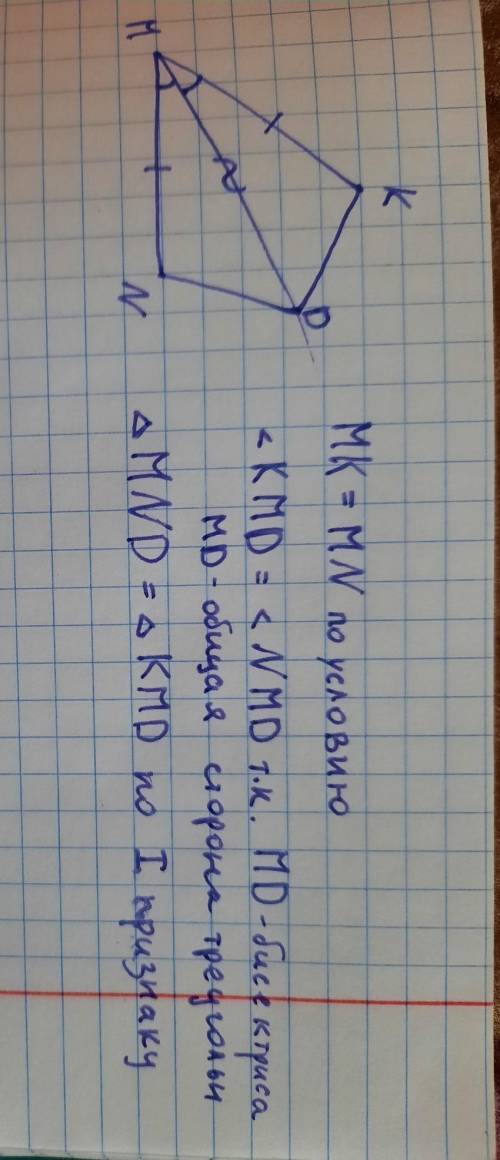 M
K
N
D
MK = MN по условию
< KMD = < NMD т.к. MD - бисектриса
MD - общая сторона треугольн
△ MND = △ KMD по I признаку